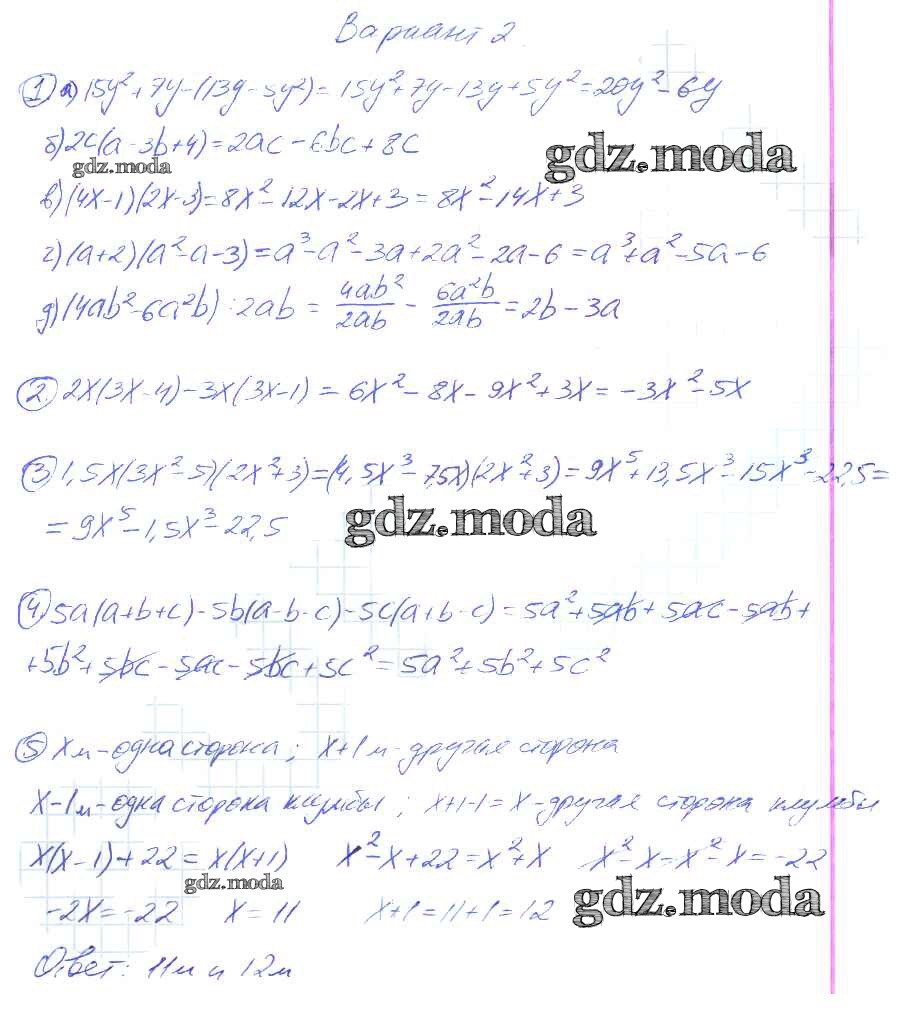 Вариант 2
① а) 15y²+7y-(13y-5y²)=15y²+7y-13y+5y²=20y²-6y
б) 2c(a-3b+4)=2ac-6bc+8c
gdz.moda
gdz.moda
в) (4x-1)(2x-3)=8x²-12x-2x+3=8x²-14x+3
г) (a+2)(a²-a-3)=a³-a²-3a+2a²-2a-6=a³+a²-5a-6
д) (4ab²-6a²b):2ab = 4ab²/2ab - 6a²b/2ab = 2b-3a
② 2x(3x-4)-3x(3x-1)=6x²-8x-9x²+3x=-3x²-5x
③ 1,5x(3x²-5)(2x²+3)=(4,5x³-7,5x)(2x²+3)=9x⁵+13,5x³-15x³-22,5=
=9x⁵-1,5x³-22,5
gdz.moda
④ 5a(a+b+c)-5b(a-b-c)-5c(a+b-c)=5a²+5ab+5ac-5ab+
+5b²+5bc-5ac-5bc+5c²=5a²+5b²+5c²
⑤ x м-одна сторона; x+1 м-другая сторона
x-1 м-одна сторона клумбы; x+1-1=x-другая сторона клумбы
x(x-1)+22=x(x+1) x²-x+22=x²+x x²-x-x²-x=-22
gdz.moda
gdz.moda
-2x=-22 x=11 x+1=11+1=12
Ответ: 11м и 12м